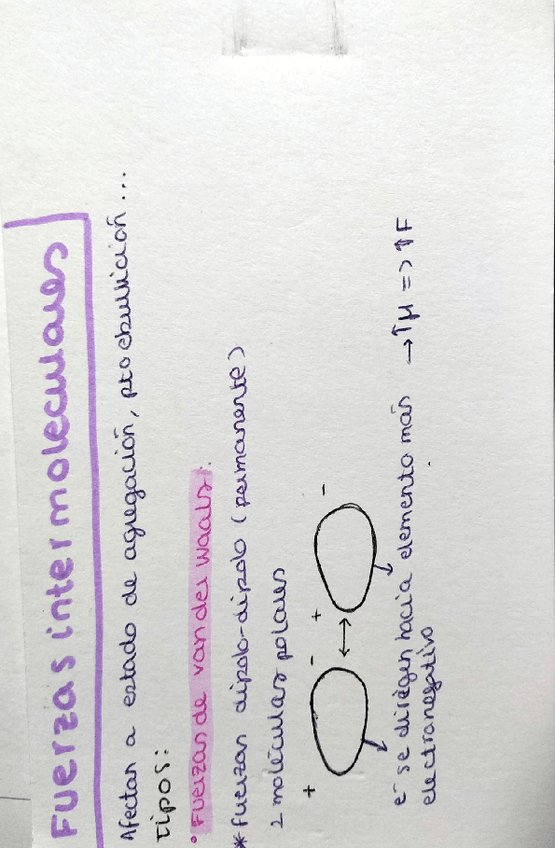 Fuerzas intermoleculares
Afectan a estado de agregación, pto ebullición...
Tipos:
° Fuerzas de van der Waals:
* Fuerzas dipolo-dipolo (permanente)
2 moléculas polares
+ - + -
e⁻ se dirigen hacia elemento más → ↑μ => ↑F
electronegativo